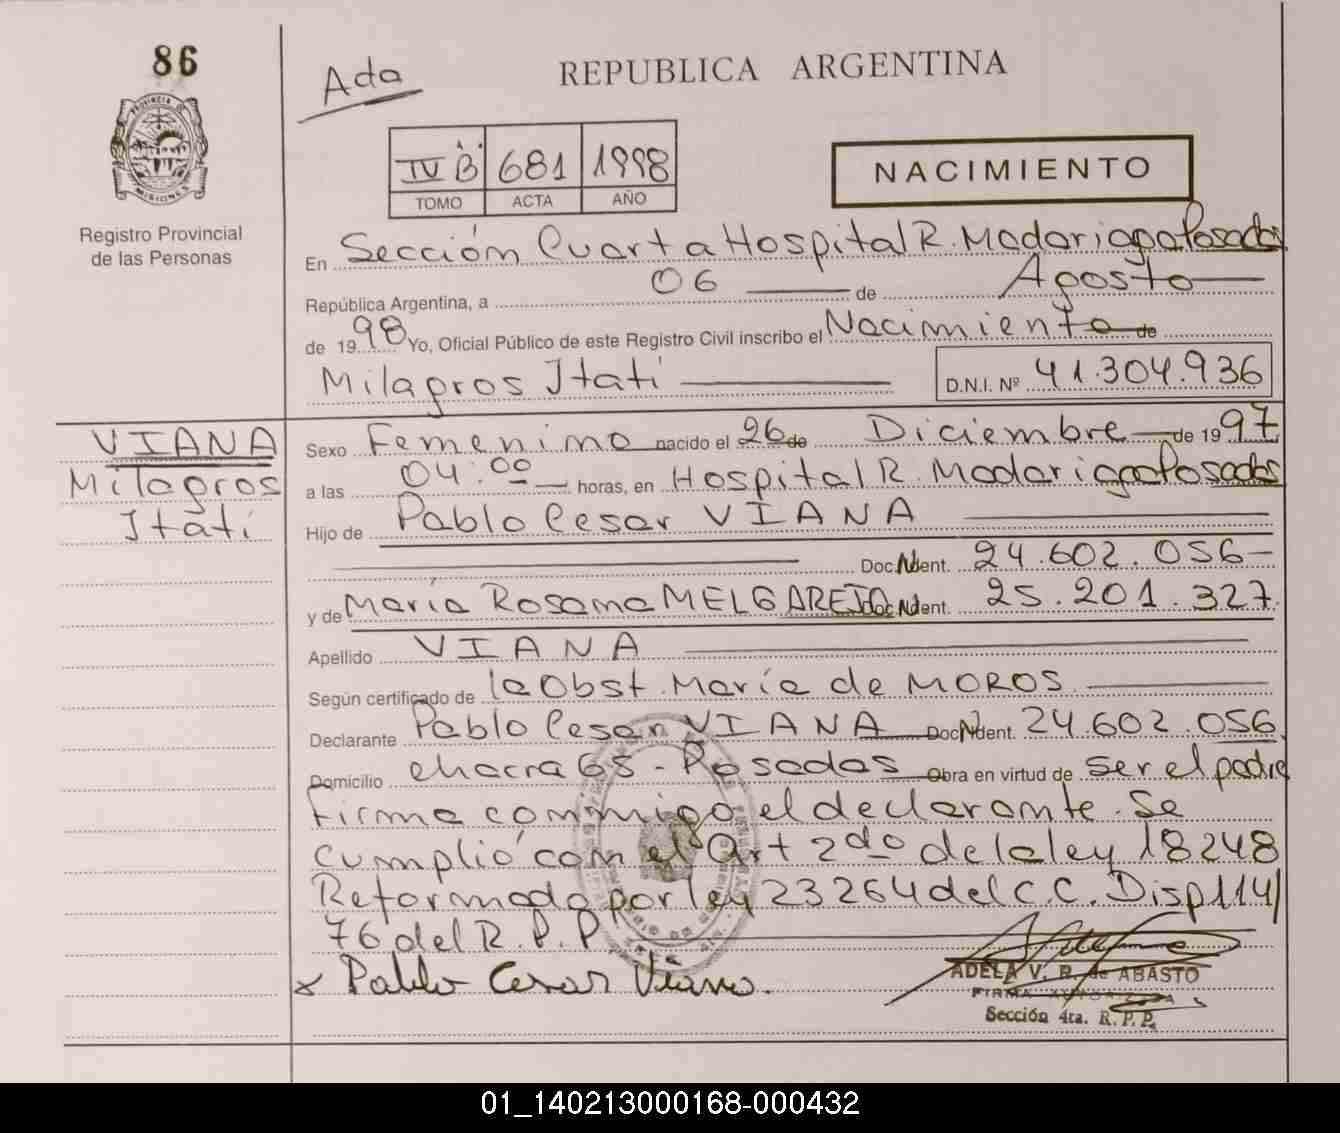 86
Ada
REPUBLICA ARGENTINA
PROVINCIA DE
MISIONES
Registro Provincial
de las Personas
IV B 681 1998
TOMO ACTA AÑO
NACIMIENTO
En Sección Cuarta Hospital R. Madariaga Posadas
República Argentina, a 06 de Agosto
de 1998 Yo, Oficial Público de este Registro Civil inscribo el Nacimiento de
Milagros Itatí D.N.I. Nº 41.304.936
VIANA
Milagros
Itatí
Sexo Femenino nacido el 26 de Diciembre de 1997
a las 04:00 horas, en Hospital R. Madariaga Posadas
Hijo de Pablo Cesar VIANA
Doc. Ident. 24.602.056
y de María Rosana MELGAREJO Doc. Ident. 25.201.327
Apellido VIANA
Según certificado de la Obst. María de MOROS
Declarante Pablo Cesar VIANA Doc. Ident. 24.602.056
Domicilio chacra 68 - Posadas Obra en virtud de ser el padre
Firma conmigo el declarante. Se
cumplió con el Art 2do de la ley 18248
Reformado por ley 23264 del C.C. Disp 114/
76 del R.P.P.
x Pablo Cesar Viana.
ADELA V. R. de ABASTO
FIRMA AUTORIZADA
Sección 4ta. R.P.P.
01_140213000168-000432